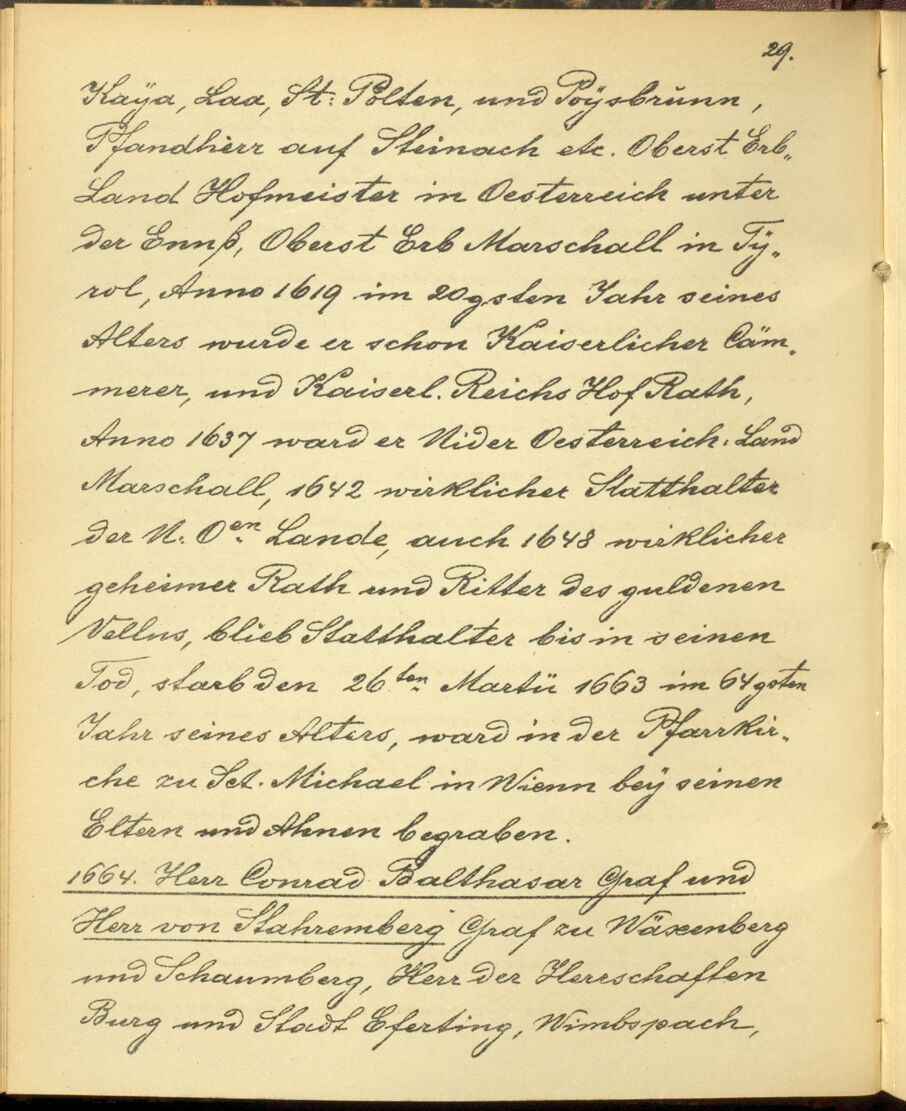 29.
Kaÿa, Laa, St: Pölten, und Poÿsbrunn,
Pfandherr auf Steinach etc. Oberst Erb„
Land Hofmeister in Oesterreich unter
der Ennß, Oberst Erb Marschall in Tÿ„
rol, Anno 1619 im 20gsten Jahr seines
Alters wurde er schon Kaiserlicher Cäm„
merer, und Kaiserl. Reichs Hof Rath,
Anno 1637 ward er Nider Oesterreich: Land
Marschall, 1642 wirklicher Statthalter
der N: Oen. Lande, auch 1648 wirklicher
geheimer Rath und Ritter des guldenen
Vellus, blieb Statthalter bis in seinen
Tod, starb den 26ten. Martii 1663 im 64gsten
Jahr seines Alters, ward in der Pfarrkir„
che zu Sct. Michael in Wienn beÿ seinen
Eltern und Ahnen begraben.
1664. Herr Conrad Balthasar Graf und
Herr von Stahremberg Graf zu Wäxenberg
und Schaumberg, Herr der Herrschaften
Burg und Stadt Eferting, Wimbspach,